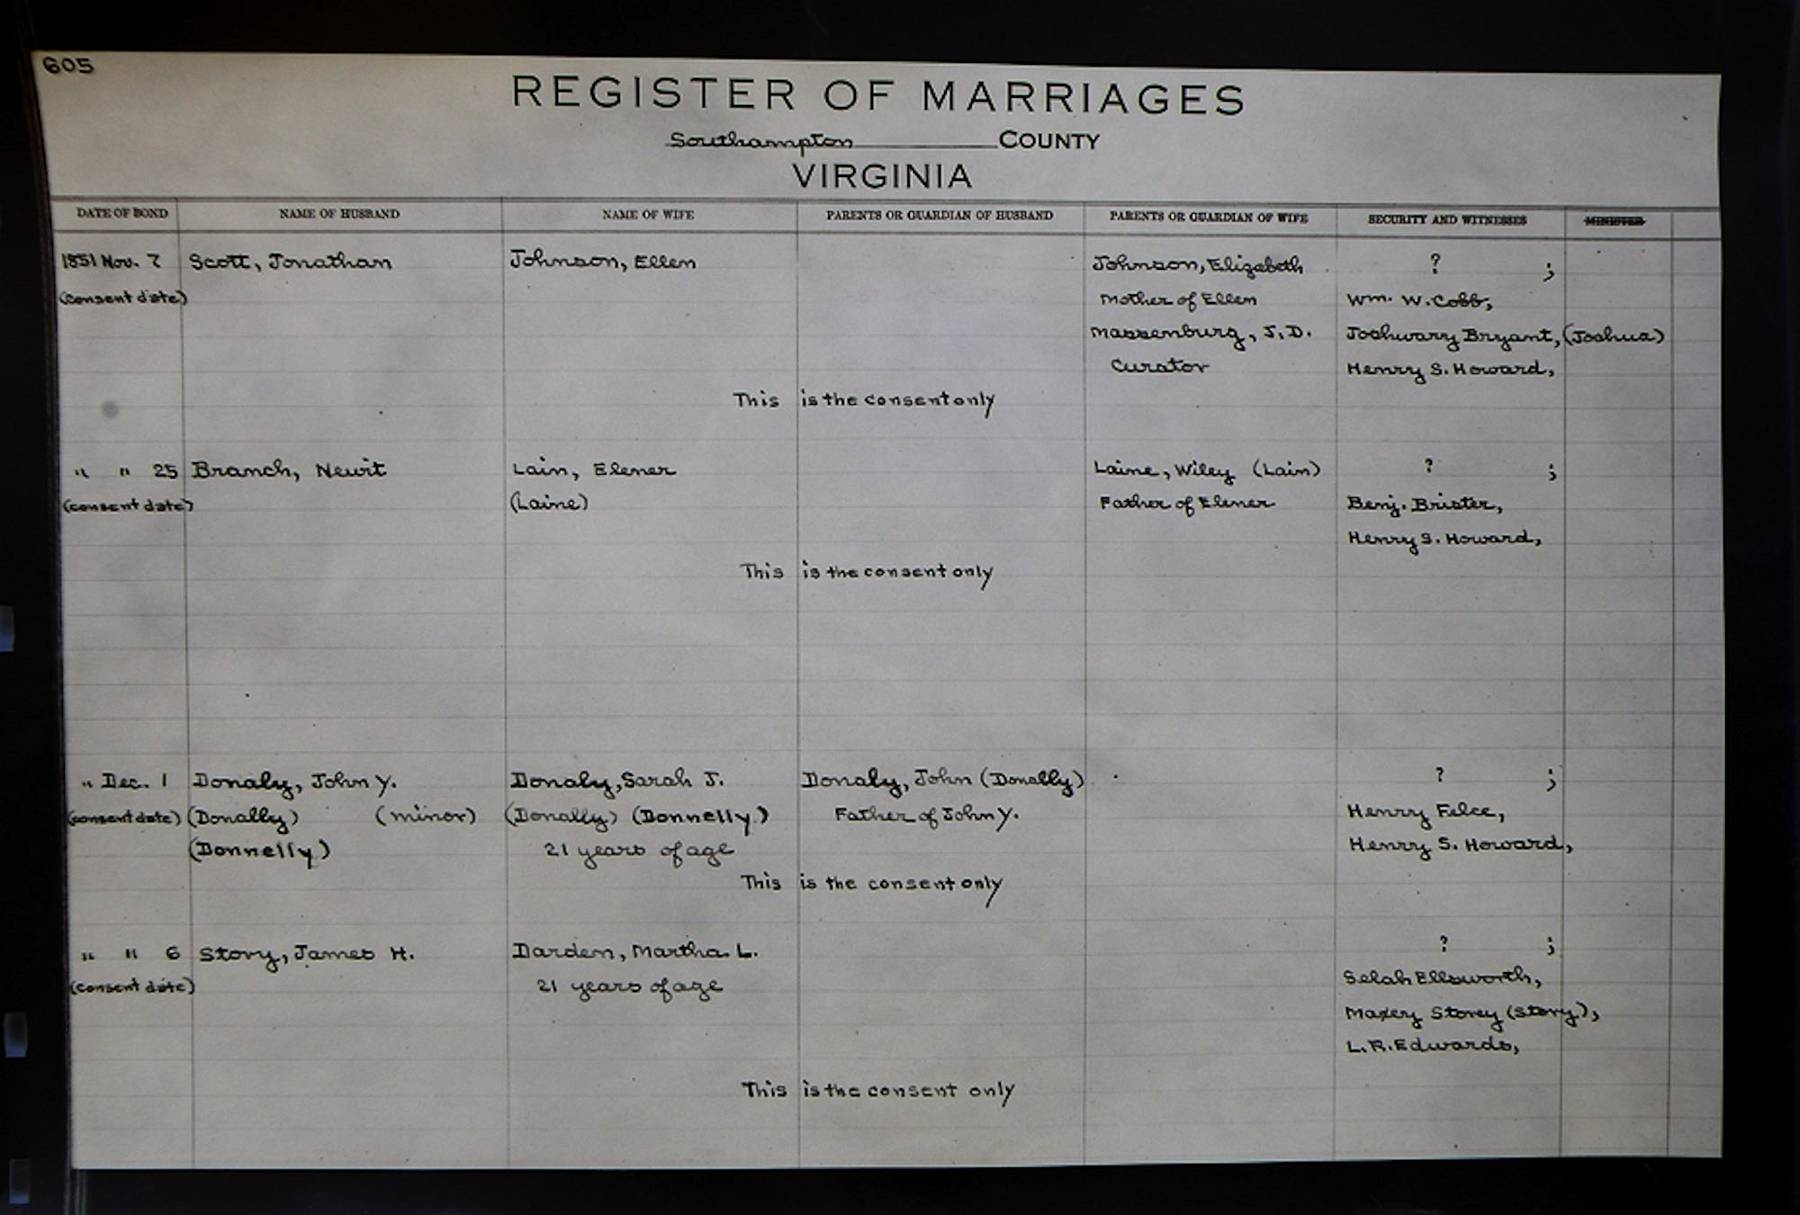 605
REGISTER OF MARRIAGES
Southampton COUNTY
VIRGINIA
DATE OF BOND NAME OF HUSBAND NAME OF WIFE PARENTS OR GUARDIAN OF HUSBAND PARENTS OR GUARDIAN OF WIFE SECURITY AND WITNESSES MINISTER
1851 Nov. 7 Scott, Jonathan Johnson, Ellen Johnson, Elizabeth ? ;
(consent date) Mother of Ellen Wm. W. Cobb,
Massenburg, J.D. Joshwary Bryant, (Joshua)
Curator Henry S. Howard,
This is the consent only
" " 25 Branch, Newit Lain, Elener Laine, Wiley (Lain) ? ;
(consent date) (Laine) Father of Elener Benj. Brister,
Henry S. Howard,
This is the consent only
" Dec. 1 Donaly, John Y. Donaly, Sarah J. Donaly, John (Donally) ? ;
(consent date) (Donally) (minor) (Donally) (Donnelly) Father of John Y. Henry Felce,
(Donnelly) 21 years of age Henry S. Howard,
This is the consent only
" " 6 Story, James H. Darden, Martha L. ? ;
(consent date) 21 years of age Selah Ellsworth,
Maxey Storey (Story),
L.R. Edwards,
This is the consent only